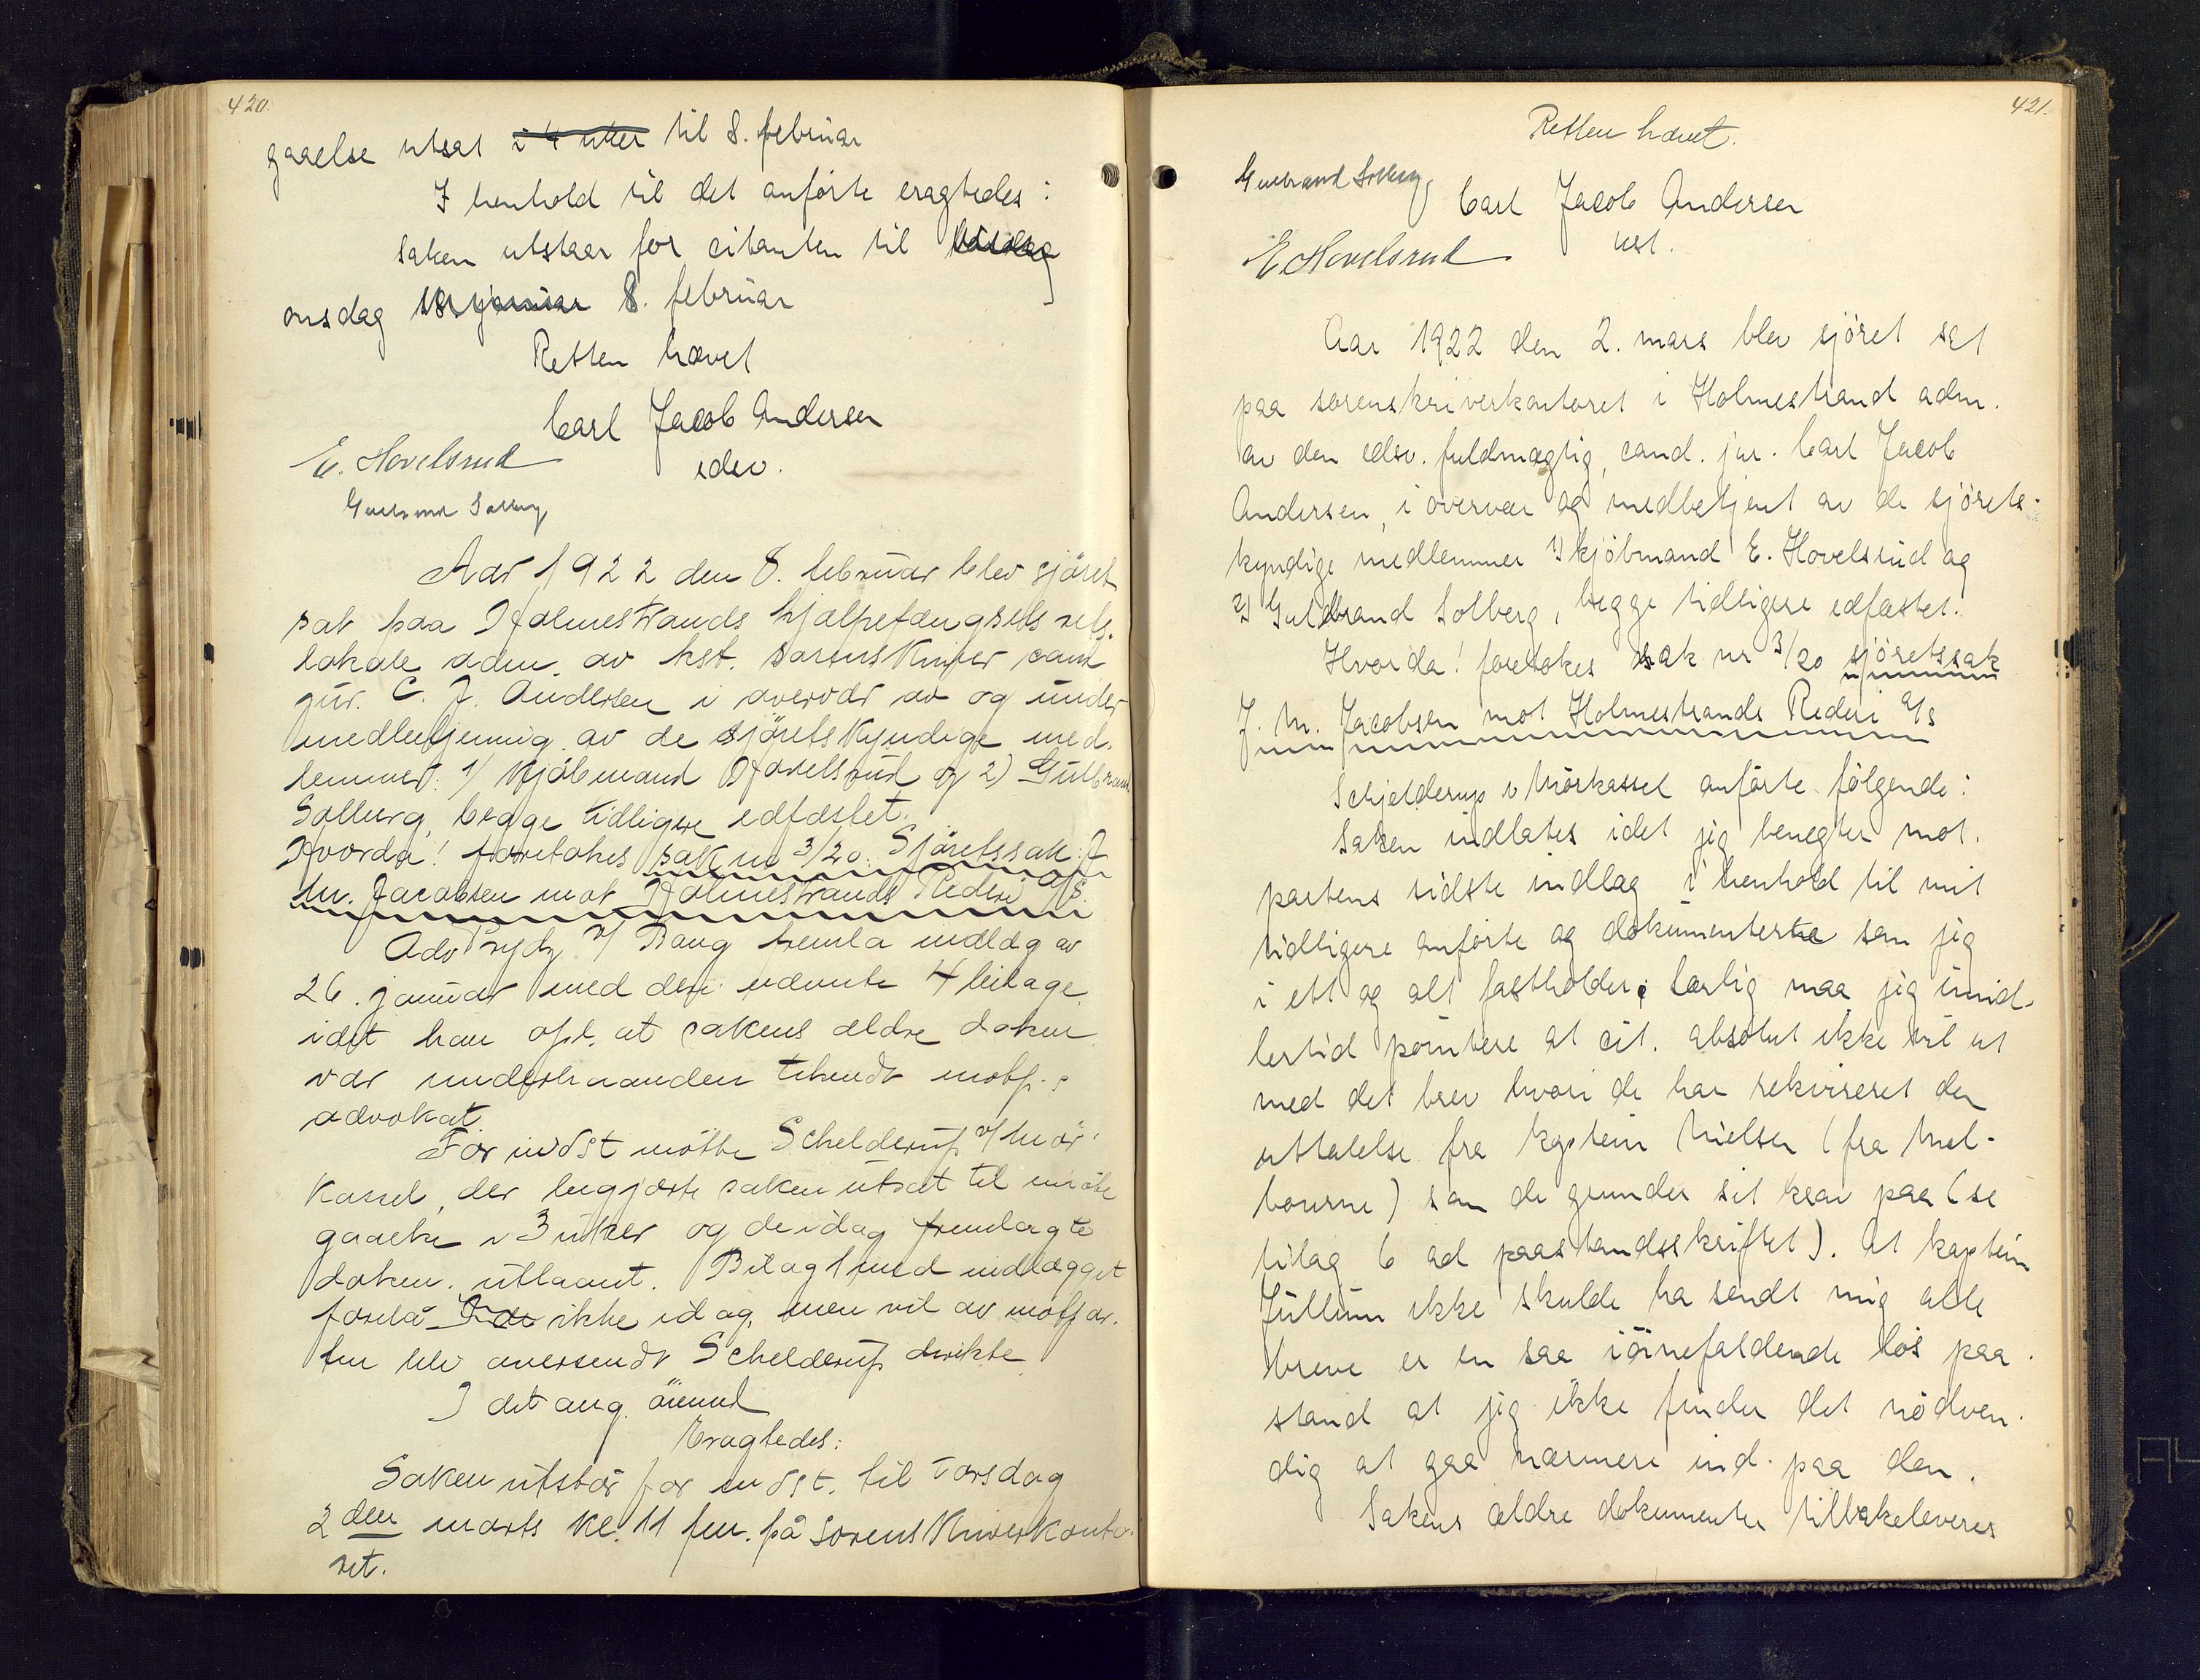 420.
gaaelse utsat i 4 uker til 8. februar
I henhold til det anførte eragtedes:
Saken utstaar for citanten til
onsdag 18. januar 8. februar
Retten hævet
Carl Jacob Andersen
E. Hovelsrud
edsv.
Gulbrand Solberg
Aar 1922 den 8. februar blev sjøret
sat paa Holmestrands hjælpefængsels rets-
lokale adm. av kst. sorenskriver cand
jur. C. J. Andersen i overvær av og under
medbetjening av de sjøretskyndige med-
lemmer: 1/ Kjøbmand Hovelsrud og 2) Gulbrand
Solberg, begge tidligere edfæstet.
Hvorda! foretokes sak nr 3/20. Sjøretssak: J
M. Jacobsen mot Holmestrands Rederi A/S.
Adv Prydz v/ Bang fremla indlæg av
26. januar med deri nævnte 4 bilage
idet han opl. at sakens ældre dokum
var underhaanden tilsendt motp.s
advokat.
For indst møtte Schelderup v/ Mør-
kassel, der begjærte saken utsat til imøte
gaaelse i 3 uker og de idag fremlagte
dokum. utlaant. Bilag 1 med indlægget
forelå ikke idag, men vil av motpar-
ten bli oversendt Schelderup direkte
I det ang. øiemed
Eragtedes:
Saken utstår for indst. til Torsdag
2 den marts kl. 11 fm. på Sorenskriverkonto-
ret.
421.
Retten hævet.
Gulbrand Solberg
Carl Jacob Andersen
E. Hovelsrud
kst.
Aar 1922 den 2. mars blev sjøret sat
paa sorenskriverkontoret i Holmestrand adm.
av den edsv. fuldmægtig, cand. jur. Carl Jacob
Andersen, i overvær og medbetjent av de sjørets-
kyndige medlemmer 1) kjøbmand E. Hovelsrud og
2) Guldbrand Solberg, begge tidligere edfæstet.
Hvorda! foretokes sak nr 3/20 sjøretssak
J. M. Jacobsen mot Holmestrands Rederi A/S
Schjelderup v Mørkassel anførte følgende:
Saken indlates idet jeg benegter mot-
partens sidste indlæg i henhold til mit
tidligere anførte og dokumenterte som jeg
i ett og alt fastholder; Særlig maa jeg imid-
lertid pointere at cit. absolut ikke vil ut
med det brev hvori de har rekvireret den
uttalelse fra kaptein Nielsen (fra Mel-
bourne) som de grunder sit krav paa (se
bilag 6 ad paastandsskriftet). At kaptein
Jullum ikke skulde ha sendt mig alle
breve er en saa iøinefaldende løs paa-
stand at jeg ikke finder det nødven-
dig at gaa nærmere ind paa den.
Sakens ældre dokumenter tilbakeleveres